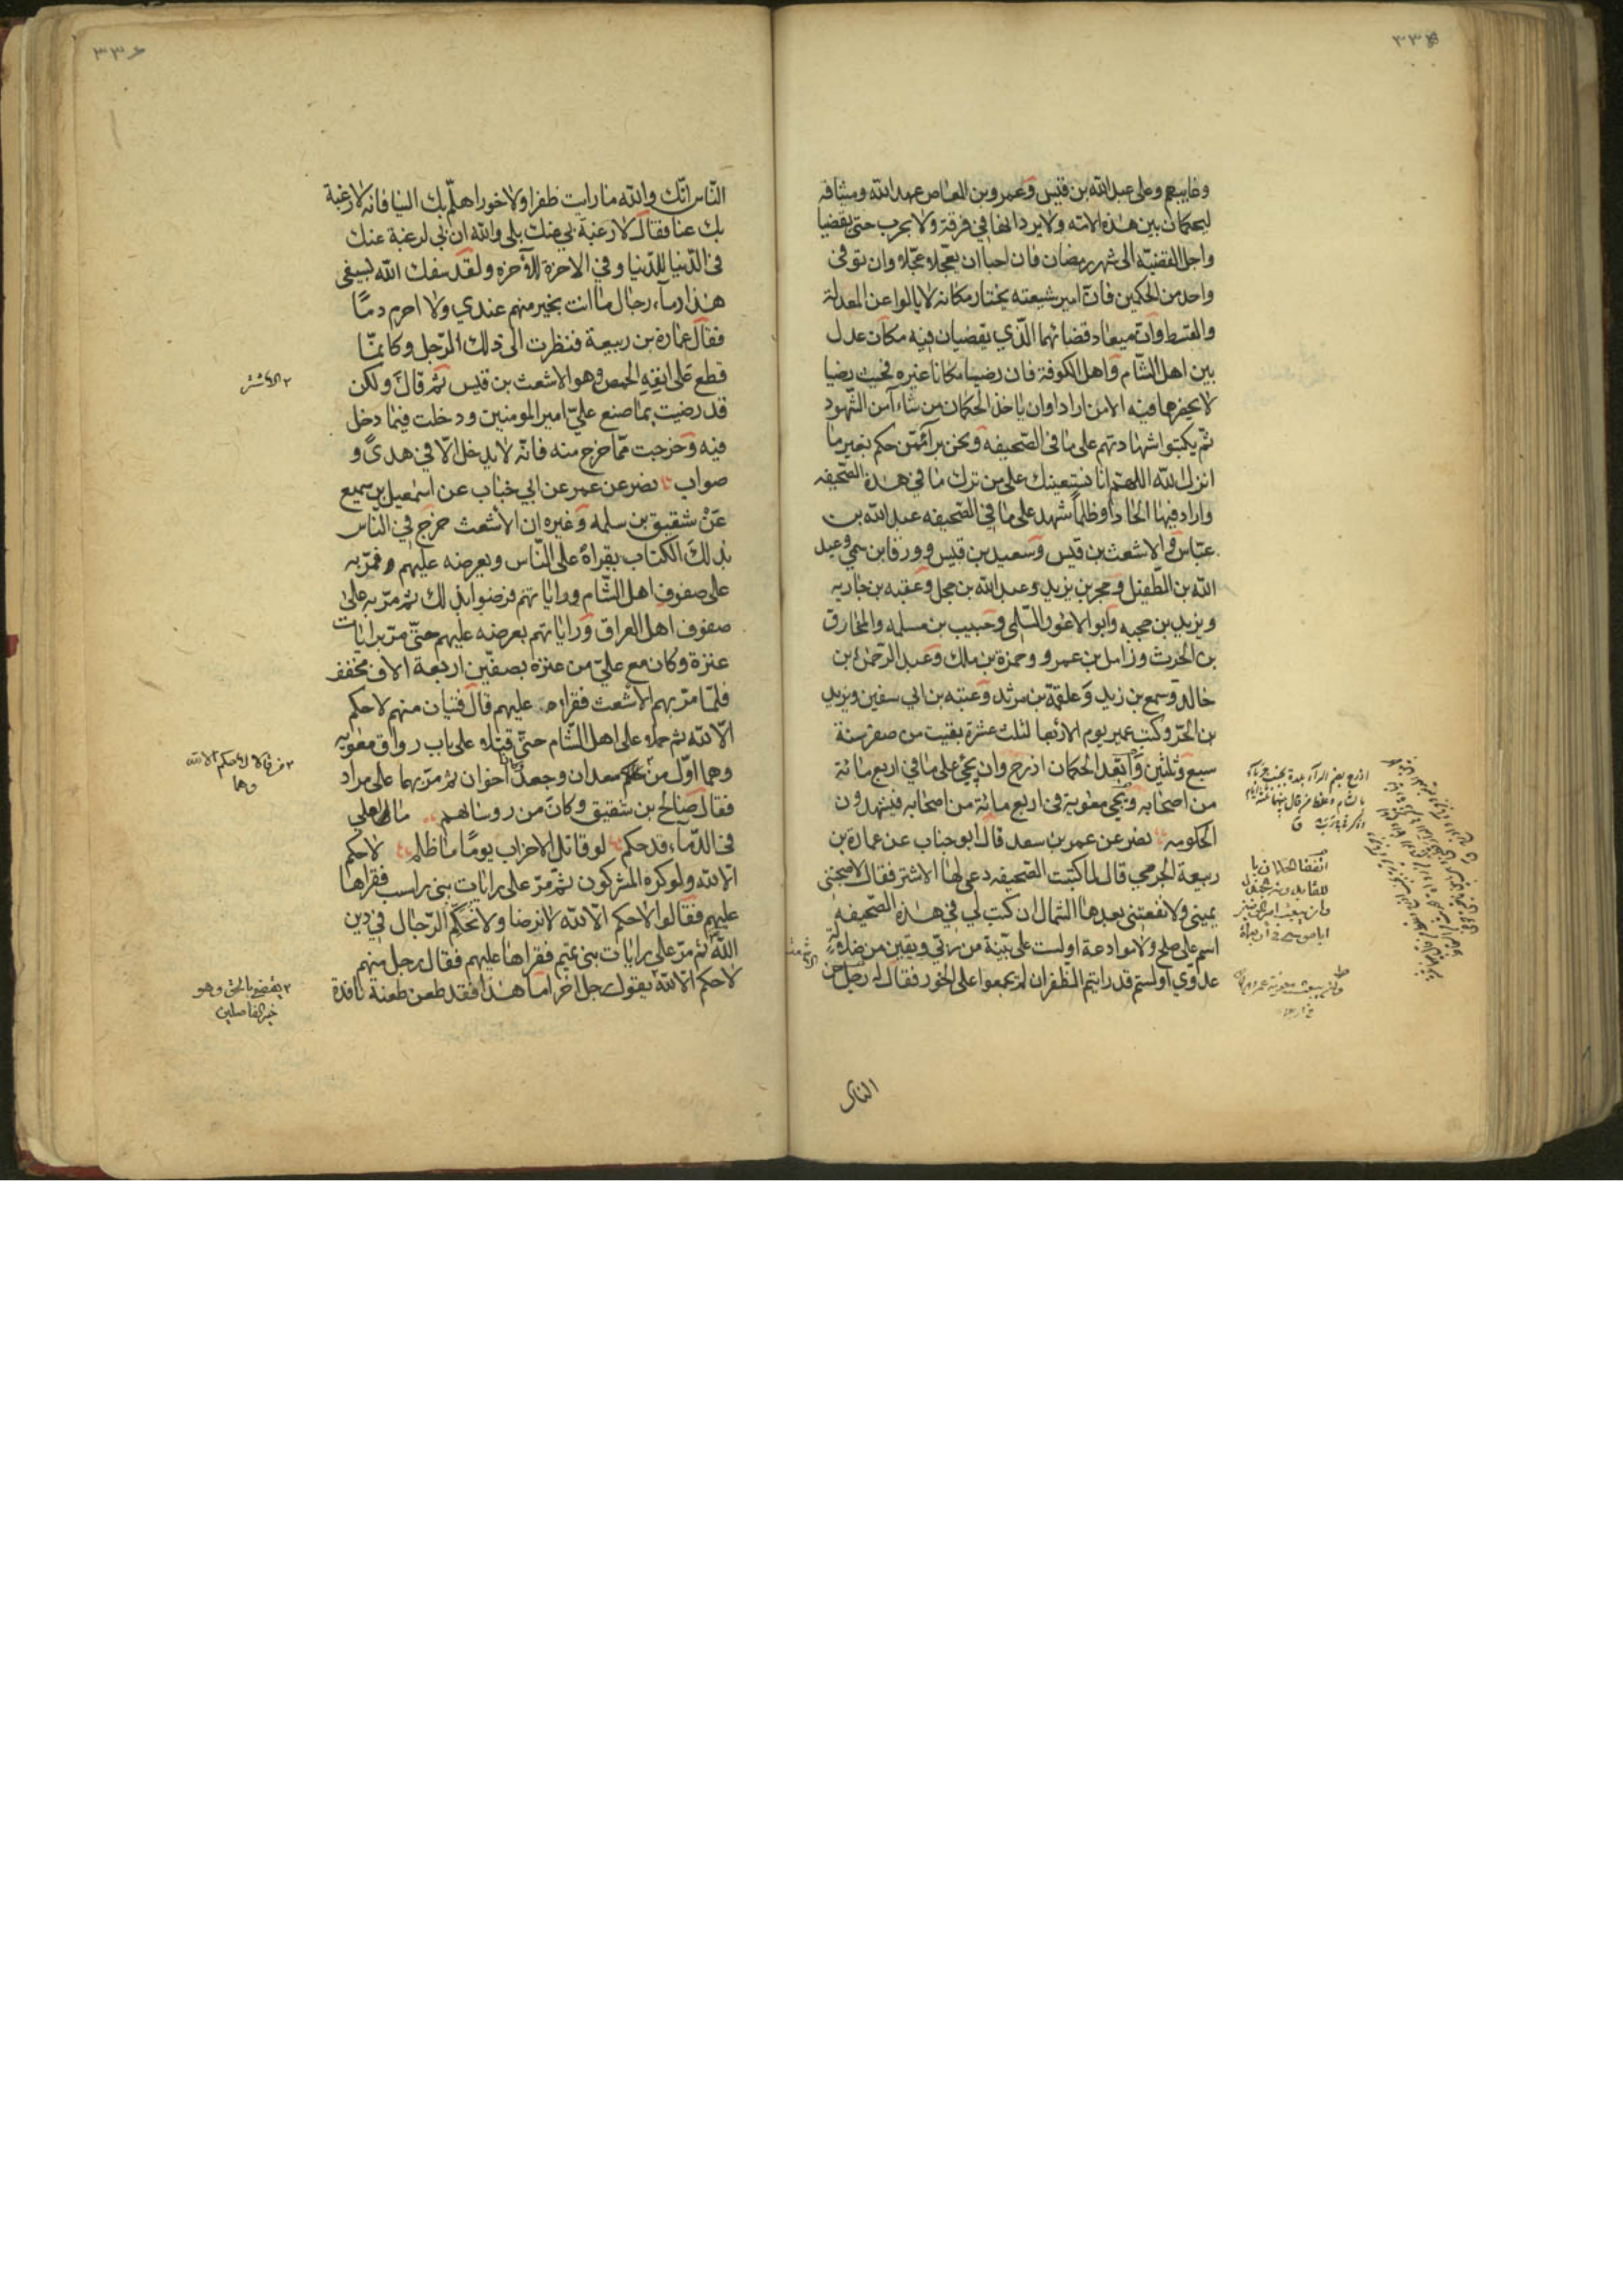 ٣٣٥
وغايبهم وعلى عبد الله بن قيس وعمرو بن العاص عهد الله وميثاقه
ليحكمان بين هذه الامة ولا يرداها في فرقة ولا بحرب حتى يقضيا
واجل القضية الى شهر رمضان فان احبا ان يعجلا عجلا وان توفى
واحد من الحكمين فان امير شيعته يختار مكانه لا يالوا عن المعدلة
والقسط وان ميعاد قضائهما الذي يقضيان فيه مكان عدل
بين اهل الشام واهل الكوفة فان رضيا مكانا غيره فحيث رضيا
لا يحضرهما فيه الا من ارادا وان ياخذ الحكمان من شاءا من الشهود
ثم يكتبوا شهادتهم على ما في الصحيفه ونحن برآء ممن حكم بغير ما
انزل الله اللهم انا نستعينك على من ترك ما في هذه الصحيفه
واراد فيها الحادا وظلما شهد على ما في الصحيفه عبد الله بن
عباس والاشعث بن قيس وسعيد بن قيس وورقا بن سمي وعبد
الله بن الطفيل وحجر بن يزيد وعبد الله بن حجل وعقبه بن جاريه
ويزيد بن حجيه وابو الاعور السلمي وحبيب بن مسلمه والمخارق
بن الحرث وزامل بن عمرو وحمزة بن ملك وعبد الرحمن بن
خالد وسمع بن زيد وعلقمة بن مرثد وعتبه بن ابي سفين ويزيد
بن الحر وكتب عمير يوم الاربعا لثلث عشرة بقيت من صفر سنة
سبع وثلثين واتعد الحكمان اذرح وان يجي على ما في اربع مائة
من اصحابه ويجي معوية في اربع مائة من اصحابه فيشهدون
الحكومه نصر عن عمر بن سعد قال ابو جناب عن عمارة بن
ربيعة الجرمي قال لما كتبت الصحيفه دعي لها الاشتر فقال لا صحبتني
يميني ولا نفعتني بعدها الشمال ان كتب لي في هذه الصحيفة
اسم على صلح ولا موادعة اولست على بينة من ربي ويقين من ضلالة
عدوي اولستم قد رايتم الظفر ان لم تجمعوا على الخور فقال له رجل من
الناس
٣٣٦
الناس انك والله ما رايت ظفرا ولا خورا هلم بك الينا فانه لا رغبة
بك عنا فقال لا رغبة بي عنك بلى والله ان بي لرغبة عنك
في الدنيا للدنيا وفي الاخرة للآخره ولقد سفك الله بسيفي
هذا دماء رجال ما انت بخير منهم عندي ولا احرم دما
فقال عمارة بن ربيعة فنظرت الى ذلك الرجل وكانما
قطع على انفه الحمص وهو الاشعث بن قيس ثم قال ولكن
٢ الاشتر
قد رضيت بما صنع علي امير المومنين ودخلت فيما دخل
فيه وخرجت مما خرج منه فانه لا يدخل الا في هدى و
صواب نصر عن عمر عن ابي خباب عن اسمعيل بن سميع
عن شقيق بن سلمه وغيره ان الاشعث خرج في الناس
بذلك الكتاب يقراه على الناس ويعرضه عليهم فمر به
على صفوف اهل الشام وراياتهم فرضوا بذلك ثم مر به على
صفوف اهل العراق وراياتهم يعرضه عليهم حتى مر برايات
عنزة وكان مع علي من عنزة بصفين اربعة الاف مخفف
فلما مر بهم الاشعث فقراه عليهم قال فتيان منهم لا حكم
الا لله ثم حملا على اهل الشام حتى قتلا على باب رواق معويه
وهما اول من حكم معدان وجعد اخوان ثم مر بهما على مراد
فقال صالح بن شقيق وكان من روسائهم ما لعلي
في الدماء قد حكم لو قاتل الاحزاب يوما ما ظلم لا حكم
الا لله ولو كره المشركون ثم مر على رايات بني راسب فقراها
عليهم فقالوا لا حكم الا لله لا نرضا ولا نحكم الرجال في دين
الله ثم مر على رايات بني تميم فقراها عليهم فقال رجل منهم
لا حكم الا لله
٢ يقضي بالحق وهو
خير الفاصلين
يقول رجل اخر اما هذا فقد طعن طعنة نافذة